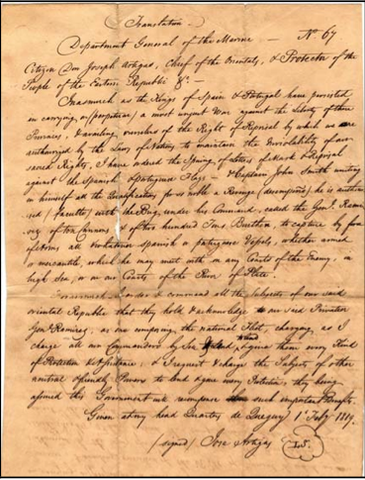 (Translation.)
Department General of the Marine — No 67
Citizen Don Joseph Artigas, Chief of the Orientals, & Protector of the
People of the Entire Republic &c. —
Inasmuch as the Kings of Spain & Portugal have persisted
in carrying on (perpetrar) a most unjust War against the Liberty of these
Provinces, & availing ourselves of the Right of Reprisal by which we are
authorised by the Laws of Nations to maintain the Inviolability of our
sacred Rights, I have ordered the of Letters of Mark & Reprisal
against the Spanish & Portuguese Flags — & Captain John Smith uniting
in himself all the Qualifications for so noble a Revenge he is author
ised (faculta) with the Brig, under his Command, called the Genl. Rami
rez of ten Cannons & of two hundred Tons Burthen, to capture by force
of Arms all Spanish or portuguese Vessels, whether armed
or mercantile, which he may meet with on any Coasts of the Enemy, in
high Sea, or in our Coasts of the River of Plate.
I order & command all the Subjects of our said
oriental Republic that they hold & acknowledge our said Privateer
Genl. Ramirez, as one composing the national Fleet, charging, as I
charge all our Commanders by Sea & Land, to give them every Kind
of Protection & Assistance; & I request & charge the Subjects of other
neutral & friendly Powers to lend & give every Protection, they being
assured this Government will recompense such important Benefits.
Given at my head Quarters de 1st. Feby 1819.
(signed) Jose Artigas